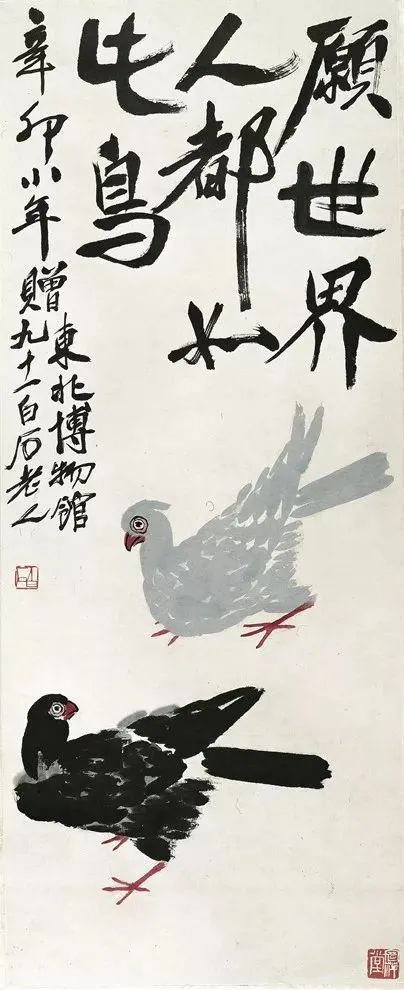 願世界
人都如
此鳥
辛卯小年贈
東北博物館
九十一白石老人